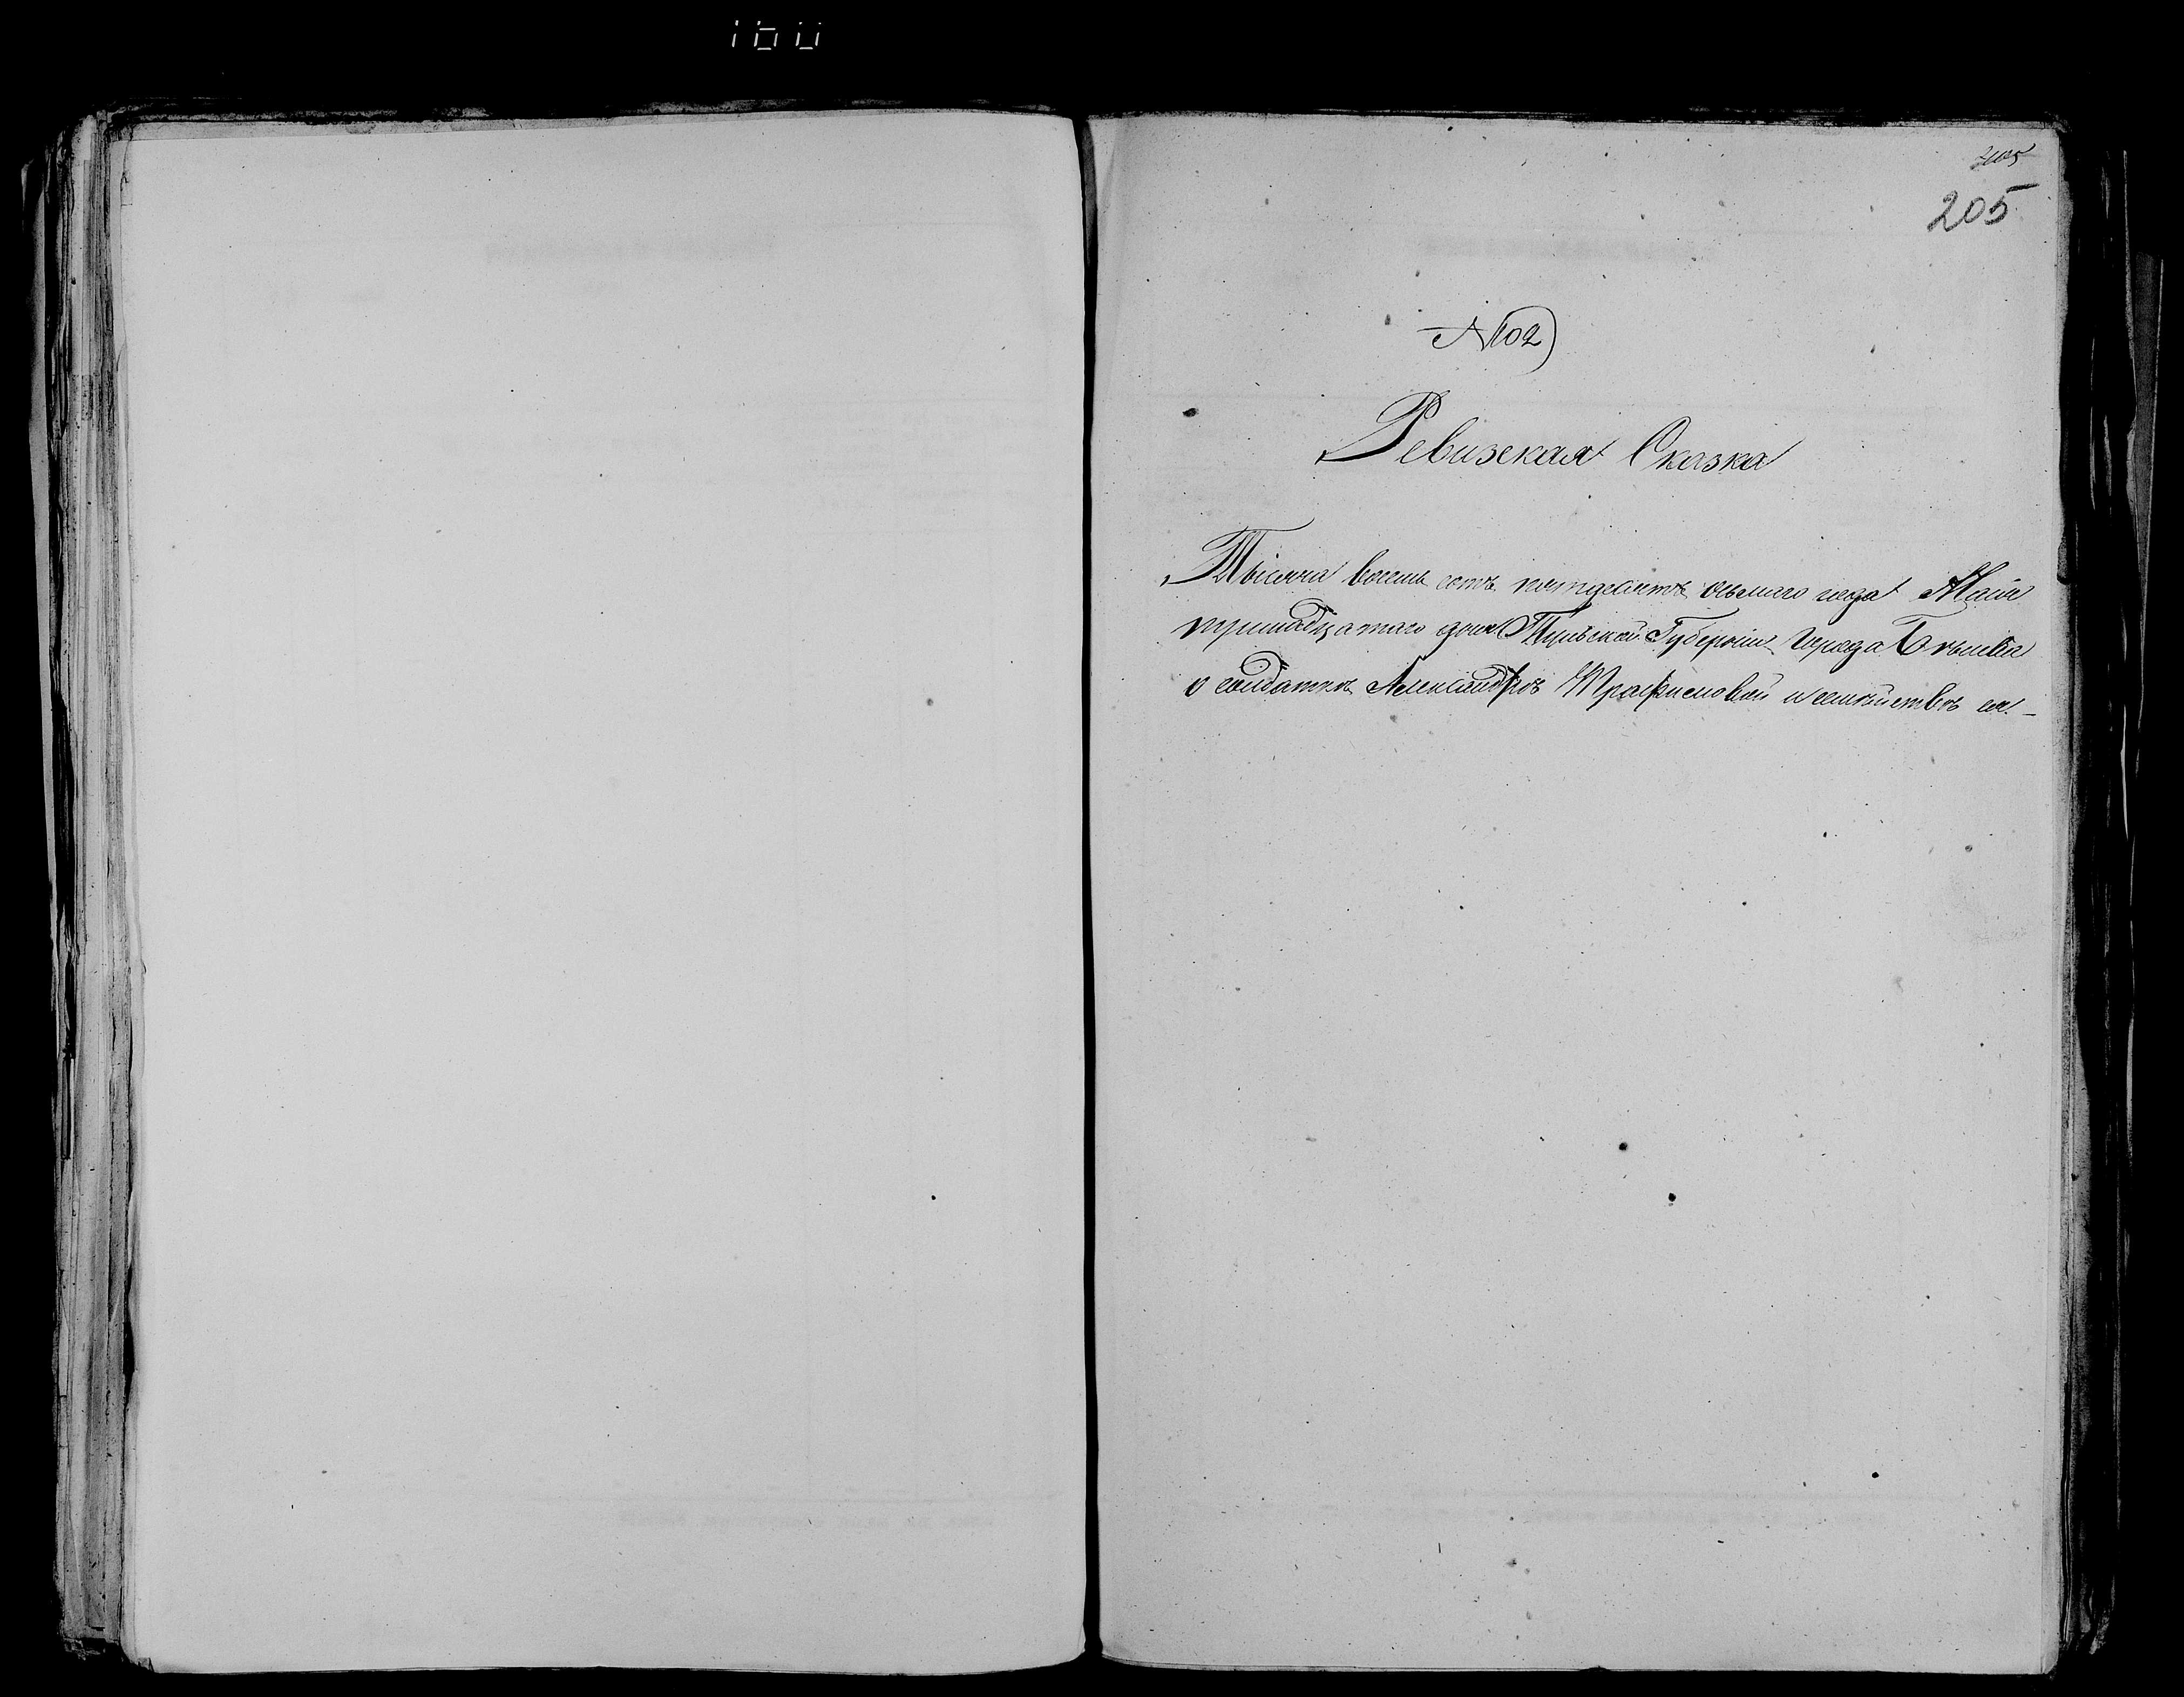 160
405
205
№ 102
Ревизская Сказка
Тысяча восемь сотъ пятдесятъ осьмаго года Мая
тринадцатаго дня Тульской Губерніи Города Бѣлева
о солдаткѣ Александрѣ Трафимовой и семѣйствѣ ея.